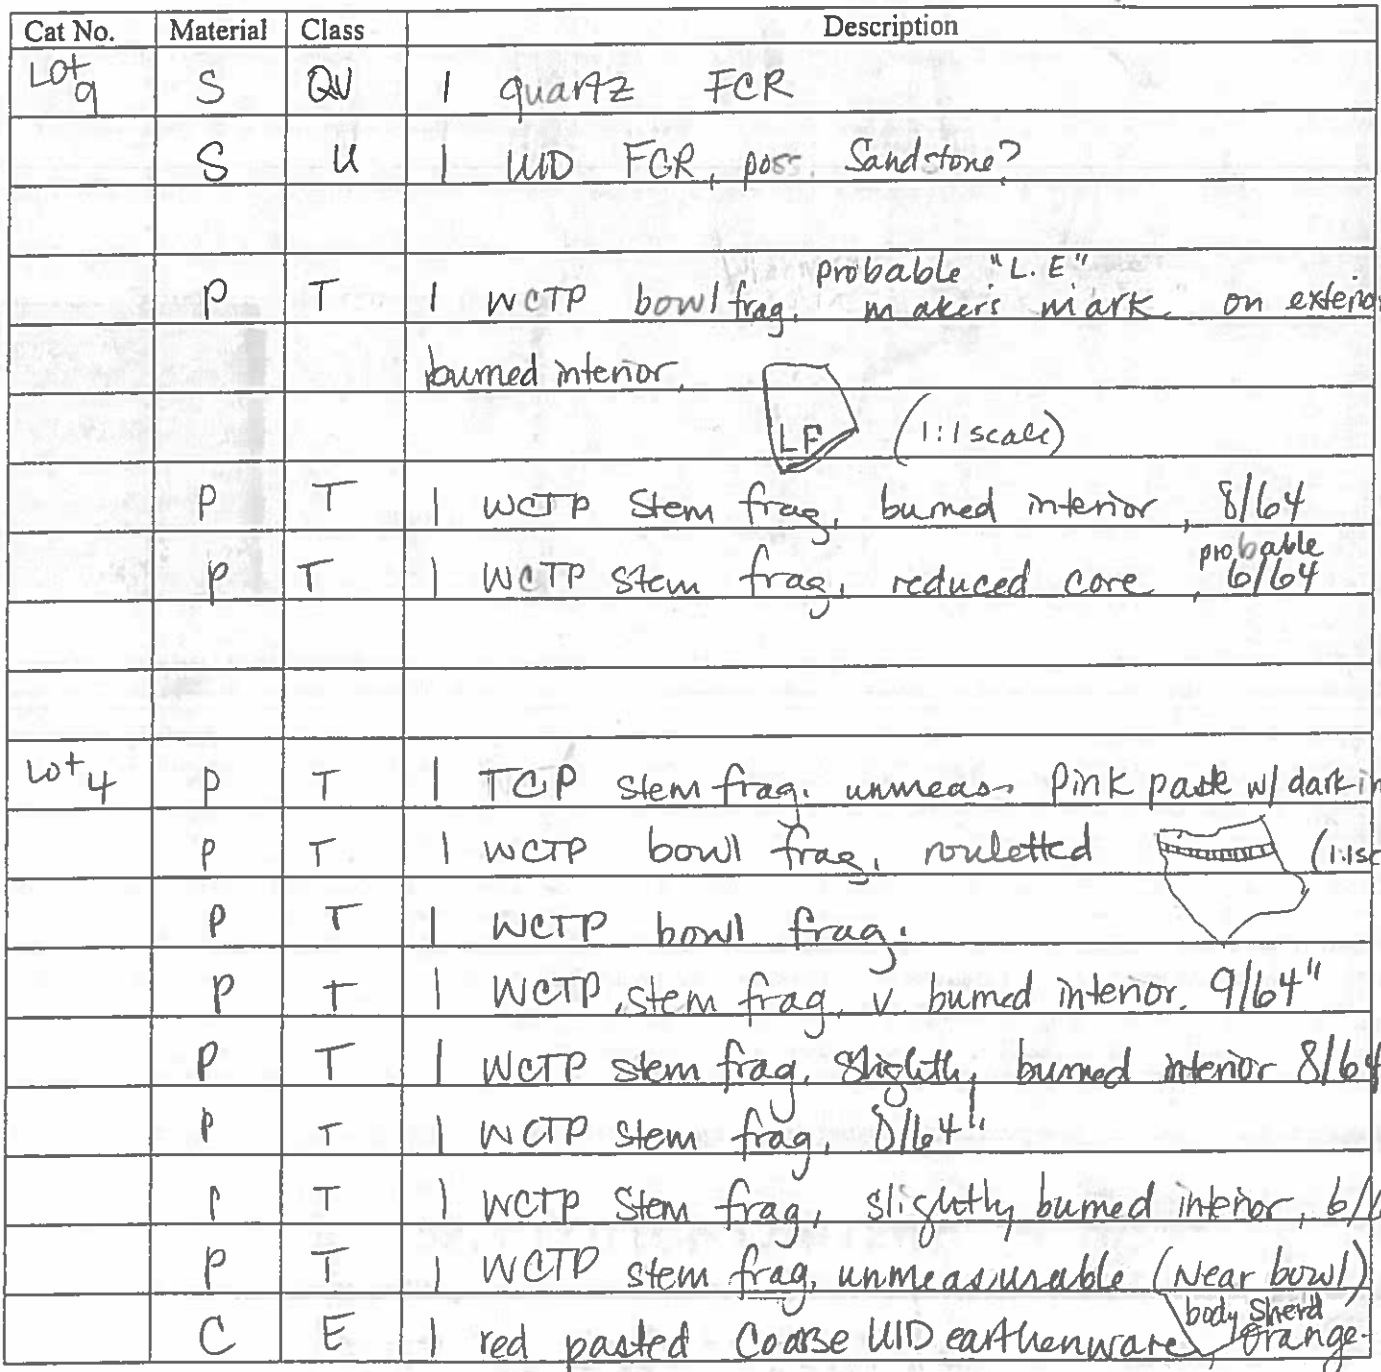 Cat No. Material Class Description
Lot 9 S QU 1 quartz FCR
S U 1 UID FCR, poss. Sandstone?
probable "L.E"
P T 1 WCTP bowl frag. maker's mark on exterior
burned interior.
LE (1:1 scale)
P T 1 WCTP stem frag, burned interior, 8/64
probable
P T 1 WCTP stem frag, reduced core, 6/64
Lot 4 P T 1 TCP stem frag. unmeas. Pink paste w/ dark in
P T 1 WCTP bowl frag, rouletted (1:1sc
P T 1 WCTP bowl frag.
P T 1 WCTP, stem frag, v. burned interior. 9/64"
P T 1 WCTP stem frag, slightly burned interior 8/64
P T 1 WCTP stem frag, 8/64"
P T 1 WCTP stem frag, slightly burned interior, 6/6
P T 1 WCTP stem frag, unmeasurable (Near bowl)
body sherd
C E 1 red pasted Coarse UID earthenware, orange-